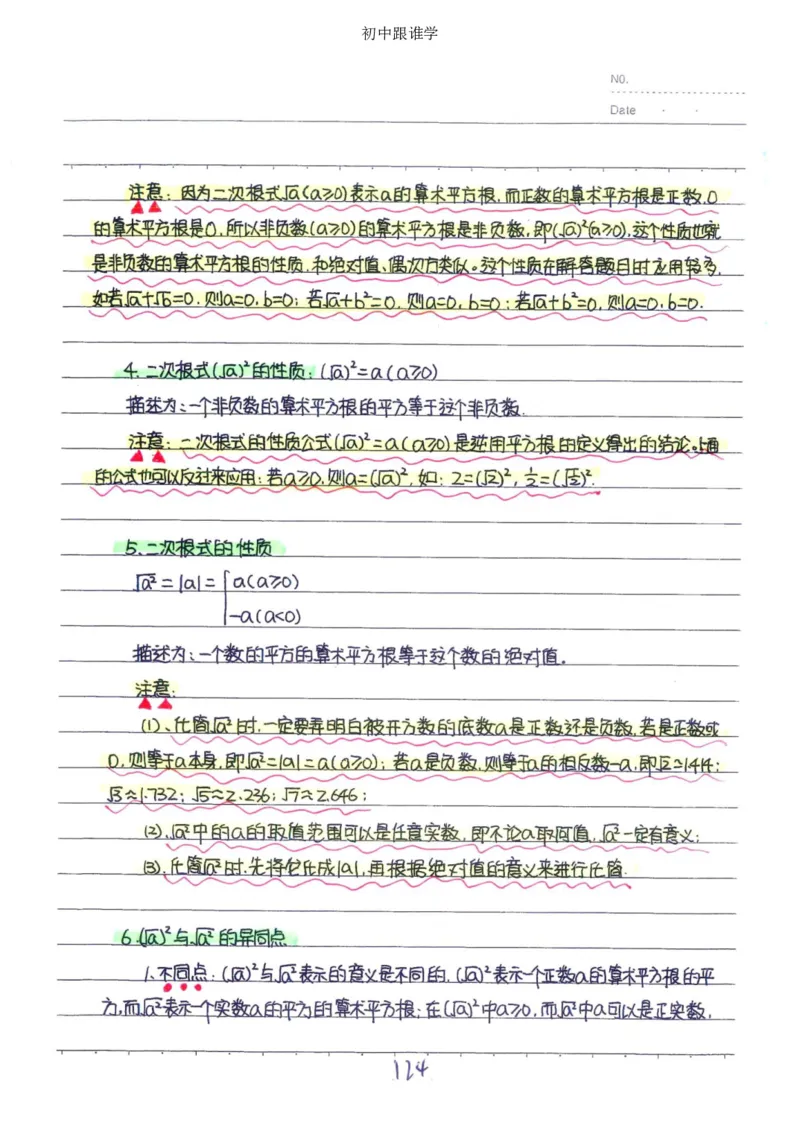 初中跟谁学
NO.
Date
注意：因为二次根式√a(a≥0)表示a的算术平方根，而正数的算术平方根是正数，0
的算术平方根是0，所以非负数(a≥0)的算术平方根是非负数，即(√a)²(a≥0)，这个性质也就
是非负数的算术平方根的性质，和绝对值、偶次方类似。这个性质在解答题目时应用较多，
如若√a+√b=0，则a=0，b=0；若√a+b²=0，则a=0，b=0；若√a+b²=0，则a=0，b=0.
4、二次根式(√a)²的性质：(√a)²=a(a≥0)
描述为：一个非负数的算术平方根的平方等于这个非负数.
注意：二次根式的性质公式(√a)²=a(a≥0)是逆用平方根的定义得出的结论。上面
的公式也可以反过来应用：若a≥0，则a=(√a)²，如：2=(√2)²，½=(√½)².
5、二次根式的性质
√a²=|a|={a(a≥0)
-a(a<0)
描述为：一个数的平方的算术平方根等于这个数的绝对值。
注意：
(1)、化简√a²时，一定要弄明白被开方数的底数a是正数还是负数，若是正数或
0，则等于a本身，即√a²=|a|=a(a≥0)；若a是负数，则等于a的相反数-a，即√2≈1.414；
√3≈1.732；√5≈2.236；√7≈2.646；
(2)、√a²中的a的取值范围可以是任意实数，即不论a取何值，√a²一定有意义；
(3)、化简√a²时，先将它化成|a|，再根据绝对值的意义来进行化简.
6.(√a)²与√a²的异同点
1、不同点：(√a)²与√a²表示的意义是不同的，(√a)²表示一个正数a的算术平方根的平
方，而√a²表示一个实数a的平方的算术平方根；在(√a)²中a≥0，而√a²中a可以是正实数，
124